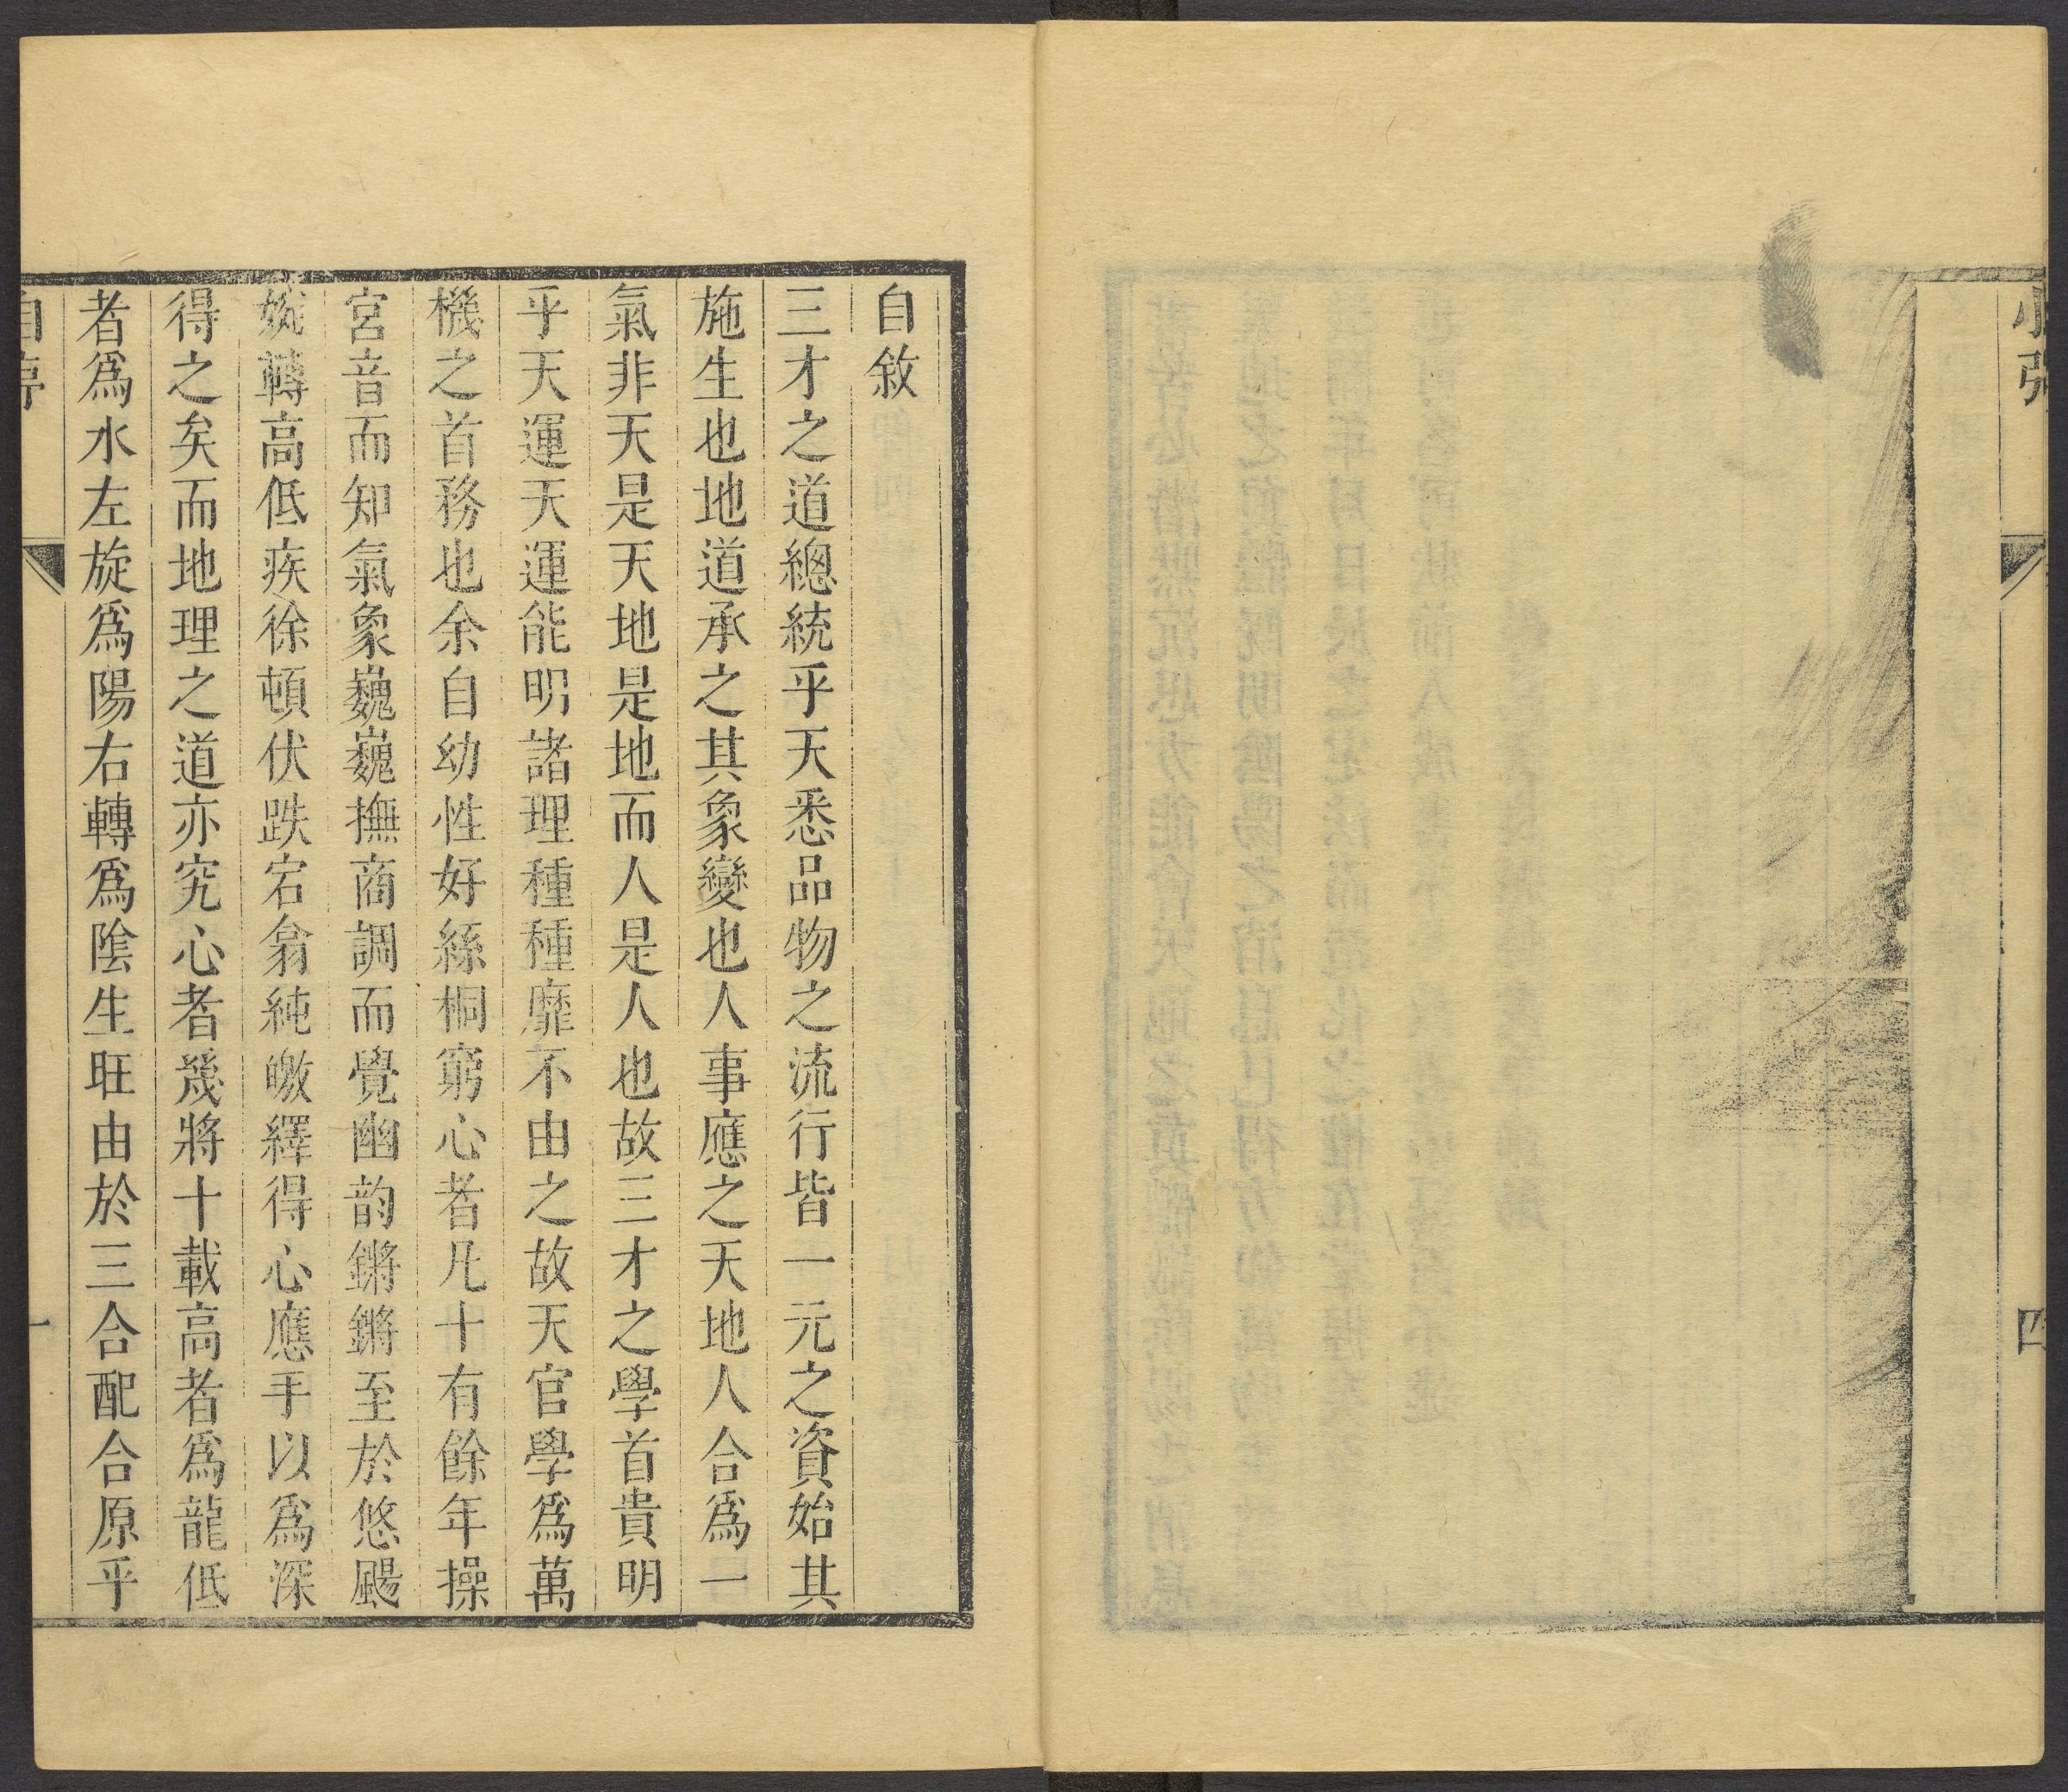 四
自敘
三才之道總統乎天悉品物之流行皆一元之資始其
施生也地道承之其象變也人事應之天地人合爲一
氣非天是天地是地而人是人也故三才之學首貴明
乎天運天運能明諸理種種靡不由之故天官學爲萬
機之首務也余自幼性好絲桐窮心者凡十有餘年操
宮音而知氣象巍巍撫商調而覺幽韵鏘鏘至於悠颺
婉轉高低疾徐頓伏跌宕翕純皦繹得心應手以爲深
得之矣而地理之道亦究心者幾將十載高者爲龍低
者爲水左旋爲陽右轉爲陰生旺由於三合配合原乎
一